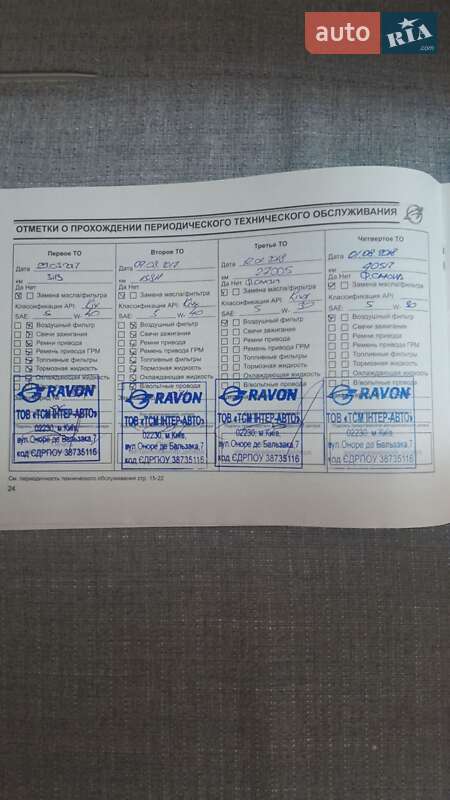 auto RIA .com
ОТМЕТКИ О ПРОХОЖДЕНИИ ПЕРИОДИЧЕСКОГО ТЕХНИЧЕСКОГО ОБСЛУЖИВАНИЯ
Первое ТО
Дата
км
Да Нет
Замена масла/фильтра
Классификация API:
SAE: 5 W- 40
Воздушный фильтр
Свечи зажигания
Ремни привода
Ремень привода ГРМ
Топливные фильтры
Тормозная жидкость
Охлаждающая жидкость
RAVON
ТОВ «ТСМ ІНТЕР-АВТО»
02230, м Київ,
вул.Оноре де Бальзака,7
код ЄДРПОУ 38735116
Второе ТО
Дата
км
Да Нет
Замена масла/фильтра
Классификация API:
SAE: 5 W- 40
Воздушный фильтр
Свечи зажигания
Ремни привода
Ремень привода ГРМ
Топливные фильтры
Тормозная жидкость
Охлаждающая жидкость
В/вольтные провода
RAVON
ТОВ «ТСМ ІНТЕР-АВТО»
02230, м Київ,
вул.Оноре де Бальзака,7
код ЄДРПОУ 38735116
Третье ТО
Дата
км 27005
Да Нет
Замена масла/фильтра
Классификация API:
SAE: 5 W-
Воздушный фильтр
Свечи зажигания
Ремни привода
Ремень привода ГРМ
Топливные фильтры
Тормозная жидкость
Охлаждающая жидкость
В/вольтные провода
RAVON
ТОВ «ТСМ ІНТЕР-АВТО»
02230, м Київ,
вул.Оноре де Бальзака,7
код ЄДРПОУ 38735116
Четвертое ТО
Дата 01.08 2018
км 40517
Да Нет
Замена масла/фильтра
Классификация API:
SAE: 5 W- 30
Воздушный фильтр
Свечи зажигания
Ремни привода
Ремень привода ГРМ
Топливные фильтры
Тормозная жидкость
Охлаждающая жидкость
RAVON
ТОВ «ТСМ ІНТЕР-АВТО»
02230, м Київ,
вул.Оноре де Бальзака,7
код ЄДРПОУ 38735116
См. периодичность технического обслуживания стр. 15-22
24